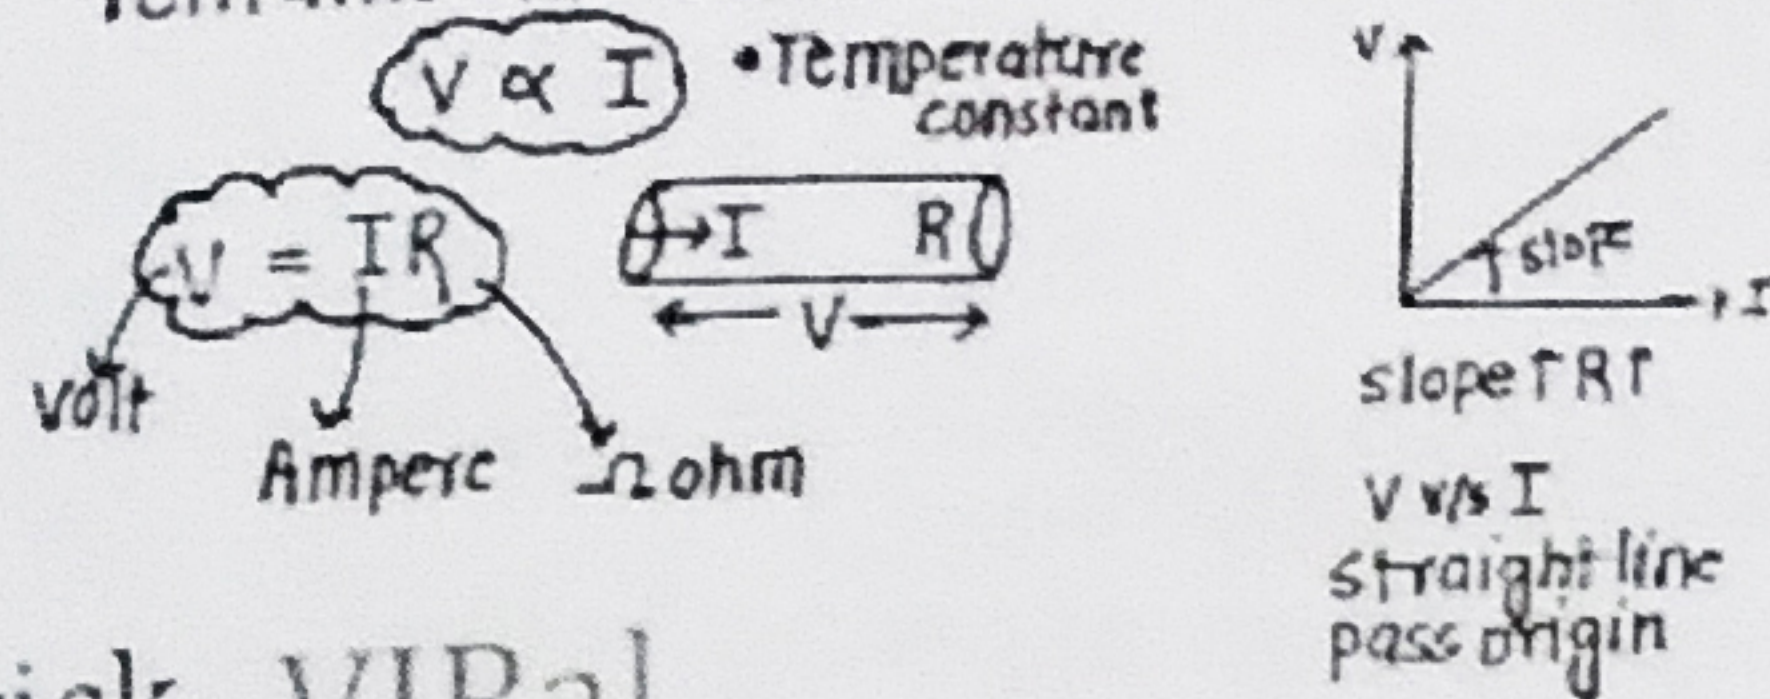 V ∝ I
• Temperature
constant
V = IR
→ I R
V
volt
Ampere
Ω ohm
V
slope
I
slope↑ R↑
V v/s I
straight line
pass origin